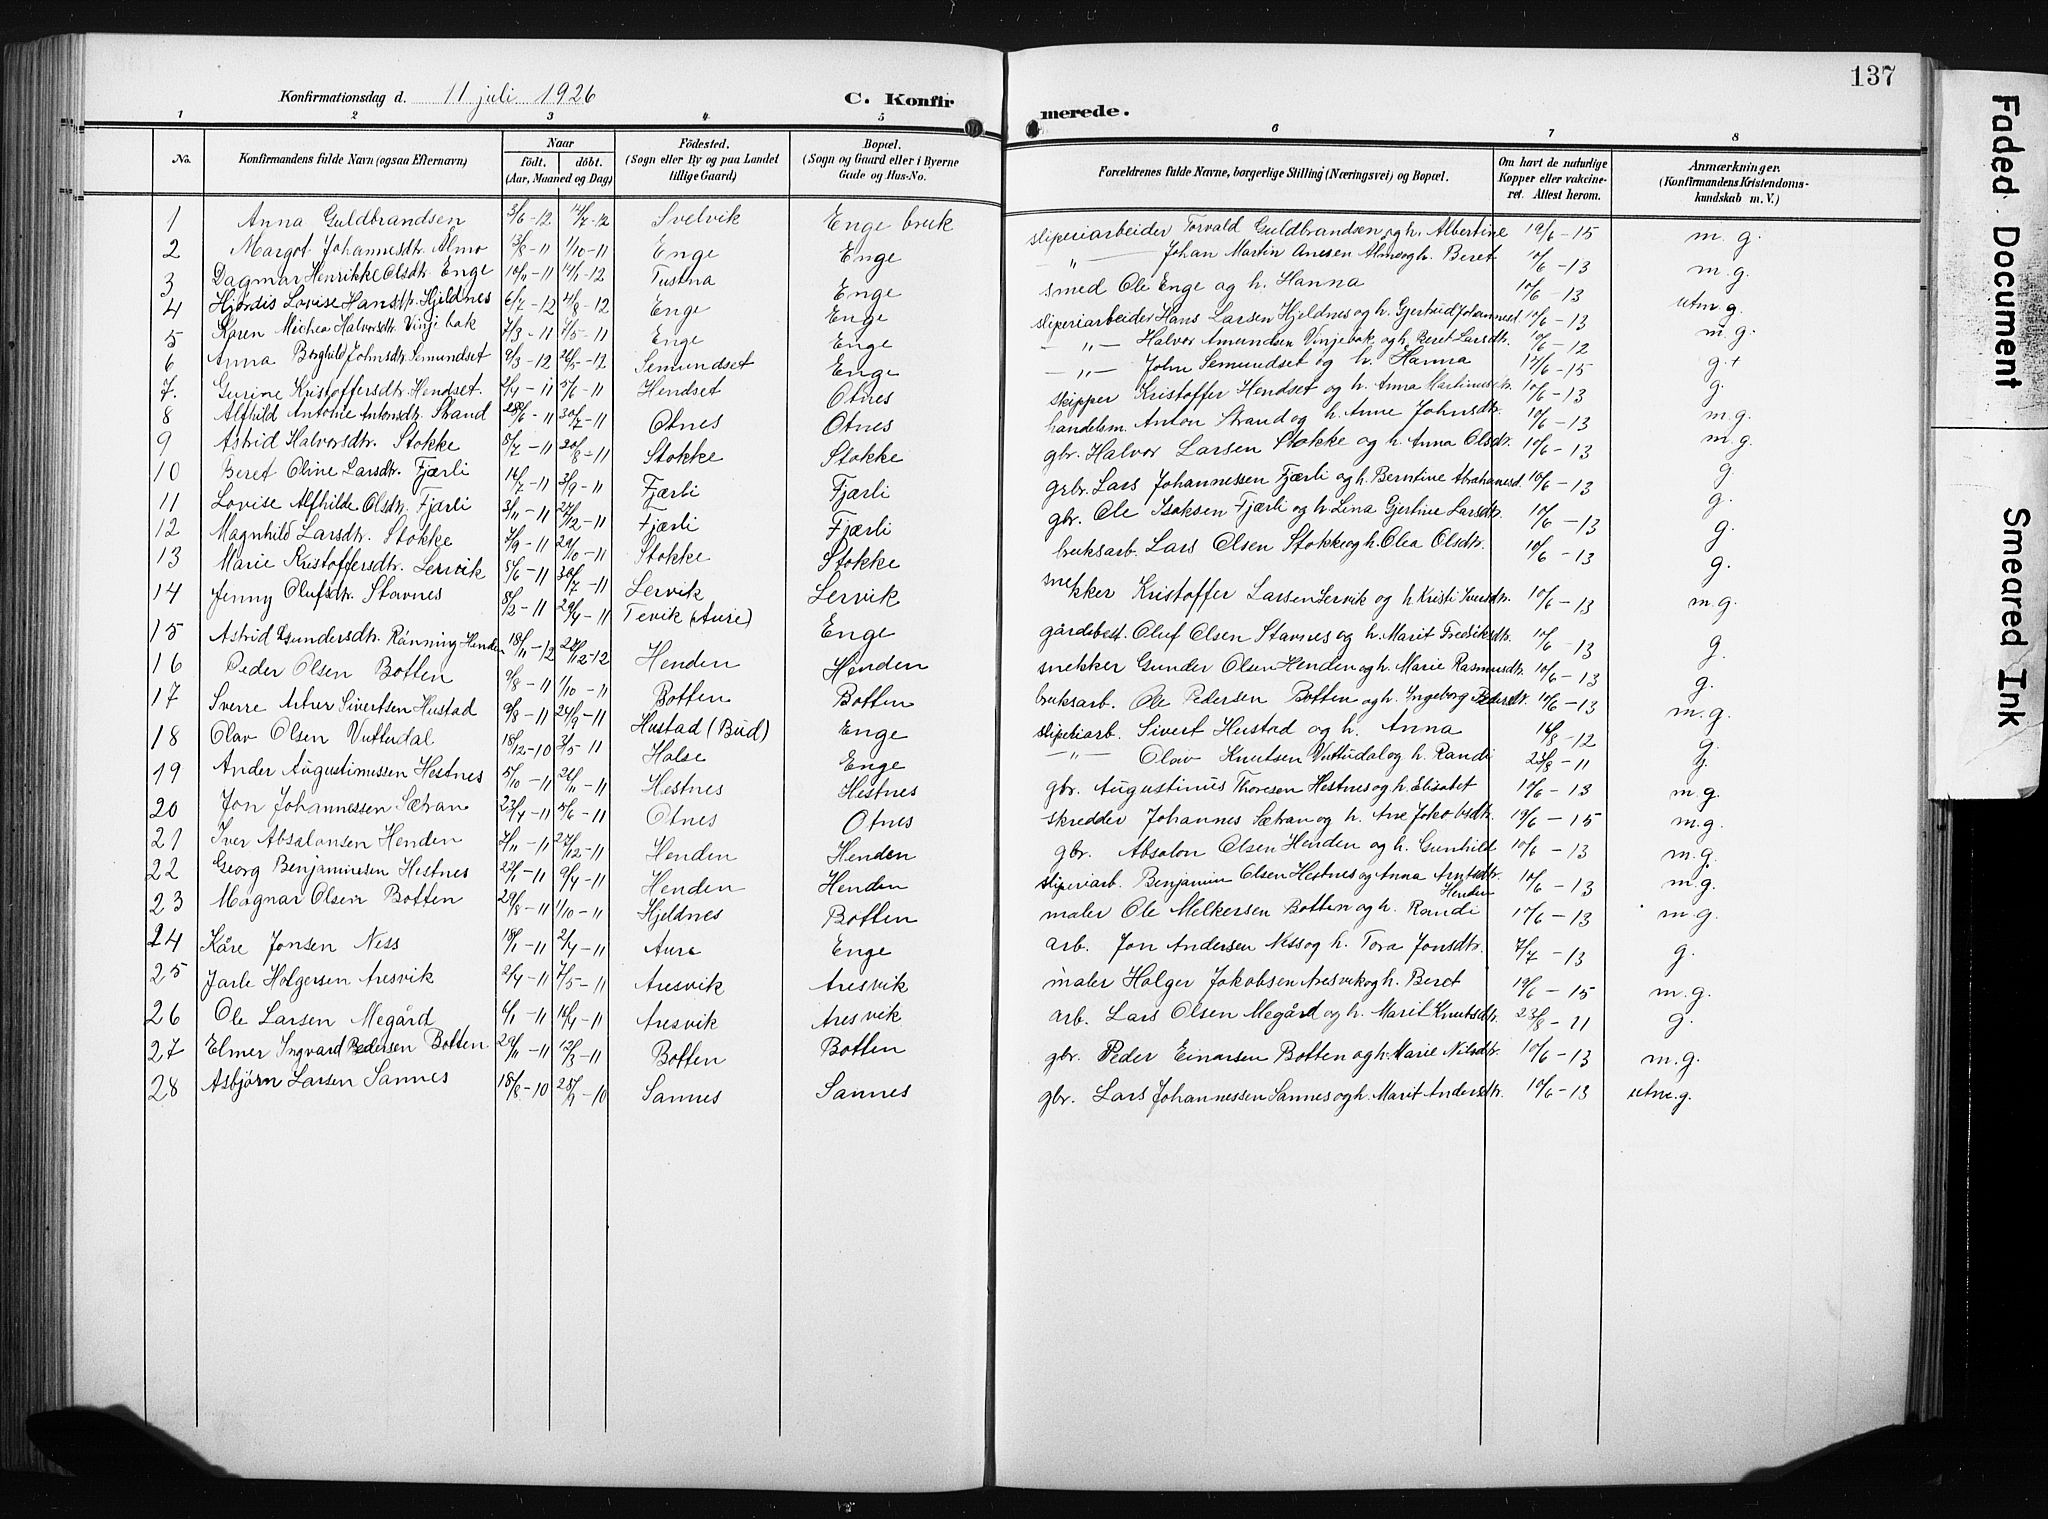 137
Konfirmationsdag d. 11 juli 1926 C. Konfirmerede.
1 2 3 4 5 6 7 8
No. Konfirmandens fulde Navn (ogsaa Efternavn) Naar født, døbt. (Aar, Maaned og Dag) Fødested. (Sogn eller By og paa Landet tillige Gaard) Bopæl. (Sogn og Gaard eller i Byerne Gade og Hus-No. Forældrenes fulde Navne, borgerlige Stilling (Næringsvei) og Bopæl. Om havt de naturlige Kopper eller vakcineret. Attest herom. Anmærkninger. (Konfirmandens Kristendomskundskab m. V.)
1 Anna Guldbrandsen 3/6-12 14/7-12 Svelvik Enge bruk sliperiarbeider Torvald Guldbrandsen og h. Albertine 19/6-15 m. g.
2 Margot Johannesdtr. Almo 3/8-11 1/10-11 Enge Enge " — Johan Martin Almo og h. Beret 10/6-13 m.g.
3 Dagmar Henrikke Olsdtr. Enge 10/11-11 14/1-12 Tustna Enge smed Ole Enge og h. Hanna 10/6-13 utm.g.
4 Hjørdis Lovise Hansdtr. Hjeldnes 6/7-12 4/8-12 Enge Enge sliperiarbeider Hans Larsen Hjeldnes og h. Gjertrud Johannesd. 10/6-13 m.g.
5 Karen Michea Halvorsdtr. Vinjebak 7/3-11 7/5-11 Enge Enge — " — Halvor Amundsen Vinjebak og h. Beret Larsdtr. 10/6-12
6 Anna Borghild Johnsdtr. Semundset 9/3-12 26/5-12 Semundset Enge — " — John Semundset og h. Hanna 14/6-15 g+
7. Gurine Kristoffersdtr. Hendset. 2/4-11 5/6-11 Hendset Otnes skipper Kristoffer Hendset og h. Anna 10/6-13 g.
8 Alfhild Antonie Antonsdtr. Strand 28/6-11 30/7-11 Otnes Otnes handelsm. Anton Strand og h. Anne Johnsdtr. 10/6-13 m.g.
9 Astrid Halvorsdtr. Stokke 8/7-11 20/8-11 Stokke Stokke gbr. Halvor Larsen Stokke og h. Anna Olsdtr. 10/6-13 m.g.
10 Beret Oline Larsdtr. Fjærli 16/7-11 3/9-11 Fjærli Fjærli grbr. Lars Johannessen Fjærli og h. Berntine Abrahamsd. 10/6-13 g.
11 Lovise Alfhilde Olsdtr. Fjærli 3/11-11 27/12-11 Fjærli Fjærli gbr. Ole Isaksen Fjærli og h. Lina Gjertine Larsdtr. 10/6-13 g.
12 Magnhild Larsdtr. Stokke 7/9-11 29/10-11 Stokke Stokke bruksarb. Lars Olsen Stokke og h. Olea Olsdtr. 10/6-13 g.
13 Marie Kristoffersdtr. Lervik 8/6-11 30/7-11 Lervik Lervik snekker Kristoffer Larsen Lervik og h Kristi Iversdtr. 10/6-13 g.
14 Jenny Olufsdtr. Stavnes 8/2-11 29/4-11 Tevik (Aure) Enge gårdsbest. Oluf Olsen Stavnes og h. Marit Fredriksdtr. 10/6-13 m.g.
15 Astrid Gundersdtr. Rånning Henden 18/11-12 26/12-12 Henden Henden snekker Gunder Olsen Henden og h. Marie Rasmusdtr. 10/6-13 g.
16 Peder Olsen Botten 9/8-11 1/10-11 Botten Botten bruksarb. Ole Pedersen Botten og h. Ingeborg Pedersdtr. 10/6-13 g.
17 Sverre Artur Sivertsen Hustad 9/8-11 24/9-11 Hustad (Bud) Enge sliperiarb. Sivert Hustad og h. Anna 16/8-12 m.g.
18 Olav Olsen Vuttudal 18/12-10 3/5-11 Halse Enge — " — Olav Knutsen Vuttudal og h. Randi 23/8-11 g.
19 Ander Augustinussen Hestnes 5/10-11 26/11-11 Hestnes Hestnes gbr. Augustinus Thoresen Hestnes og h. Elisabet 10/6-13 m.g.
20 Jon Johannessen Sætran 23/4-11 5/6-11 Otnes Otnes skredder Johannes Sætran og h. Ane Jakobsdtr. 19/6-15 m.g.
21 Iver Absalonsen Henden 7/11-11 27/12-11 Henden Henden gbr. Absalon Olsen Henden og h. Gunhild 10/6-13 m.g.
22 Georg Benjaminsen Hestnes 22/1-11 9/4-11 Henden Henden sliperiarb. Benjamin Olsen Hestnes og Anna Arntsdtr. Henden 10/6-13 m.g.
23 Magnar Olsen Botten 29/8-11 1/10-11 Hjeldnes Botten maler Ole Melkersen Botten og h. Randi 17/6-13 m.g.
24 Kåre Jonsen Ness 18/1-11 2/4-11 Aure Enge arb. Jon Andersen Ness og h. Tora Jonsdtr. 7/7-13 g.
25 Jarle Holgersen Aresvik 2/4-11 7/5-11 Aresvik Aresvik maler Holger Jakobsen Aresvik og h. Beret 19/6-15 m.g.
26 Ole Larsen Megård 6/1-11 16/4-11 Aresvik Aresvik arb. Lars Olsen Megård og h. Marit Knutsdtr. 23/8-11 g.
27 Elmer Ingvard Pedersen Botten 29/11-11 12/3-11 Botten Botten gbr. Peder Einarsen Botten og h. Marie Nilsdtr. 10/6-13 m.g.
28 Asbjørn Larsen Sannes 18/8-10 25/9-10 Sannes Sannes gbr. Lars Johannessen Sannes og h. Marit Andersdtr. 10/6-13 utm.g.
Faded Document
Smeared Ink